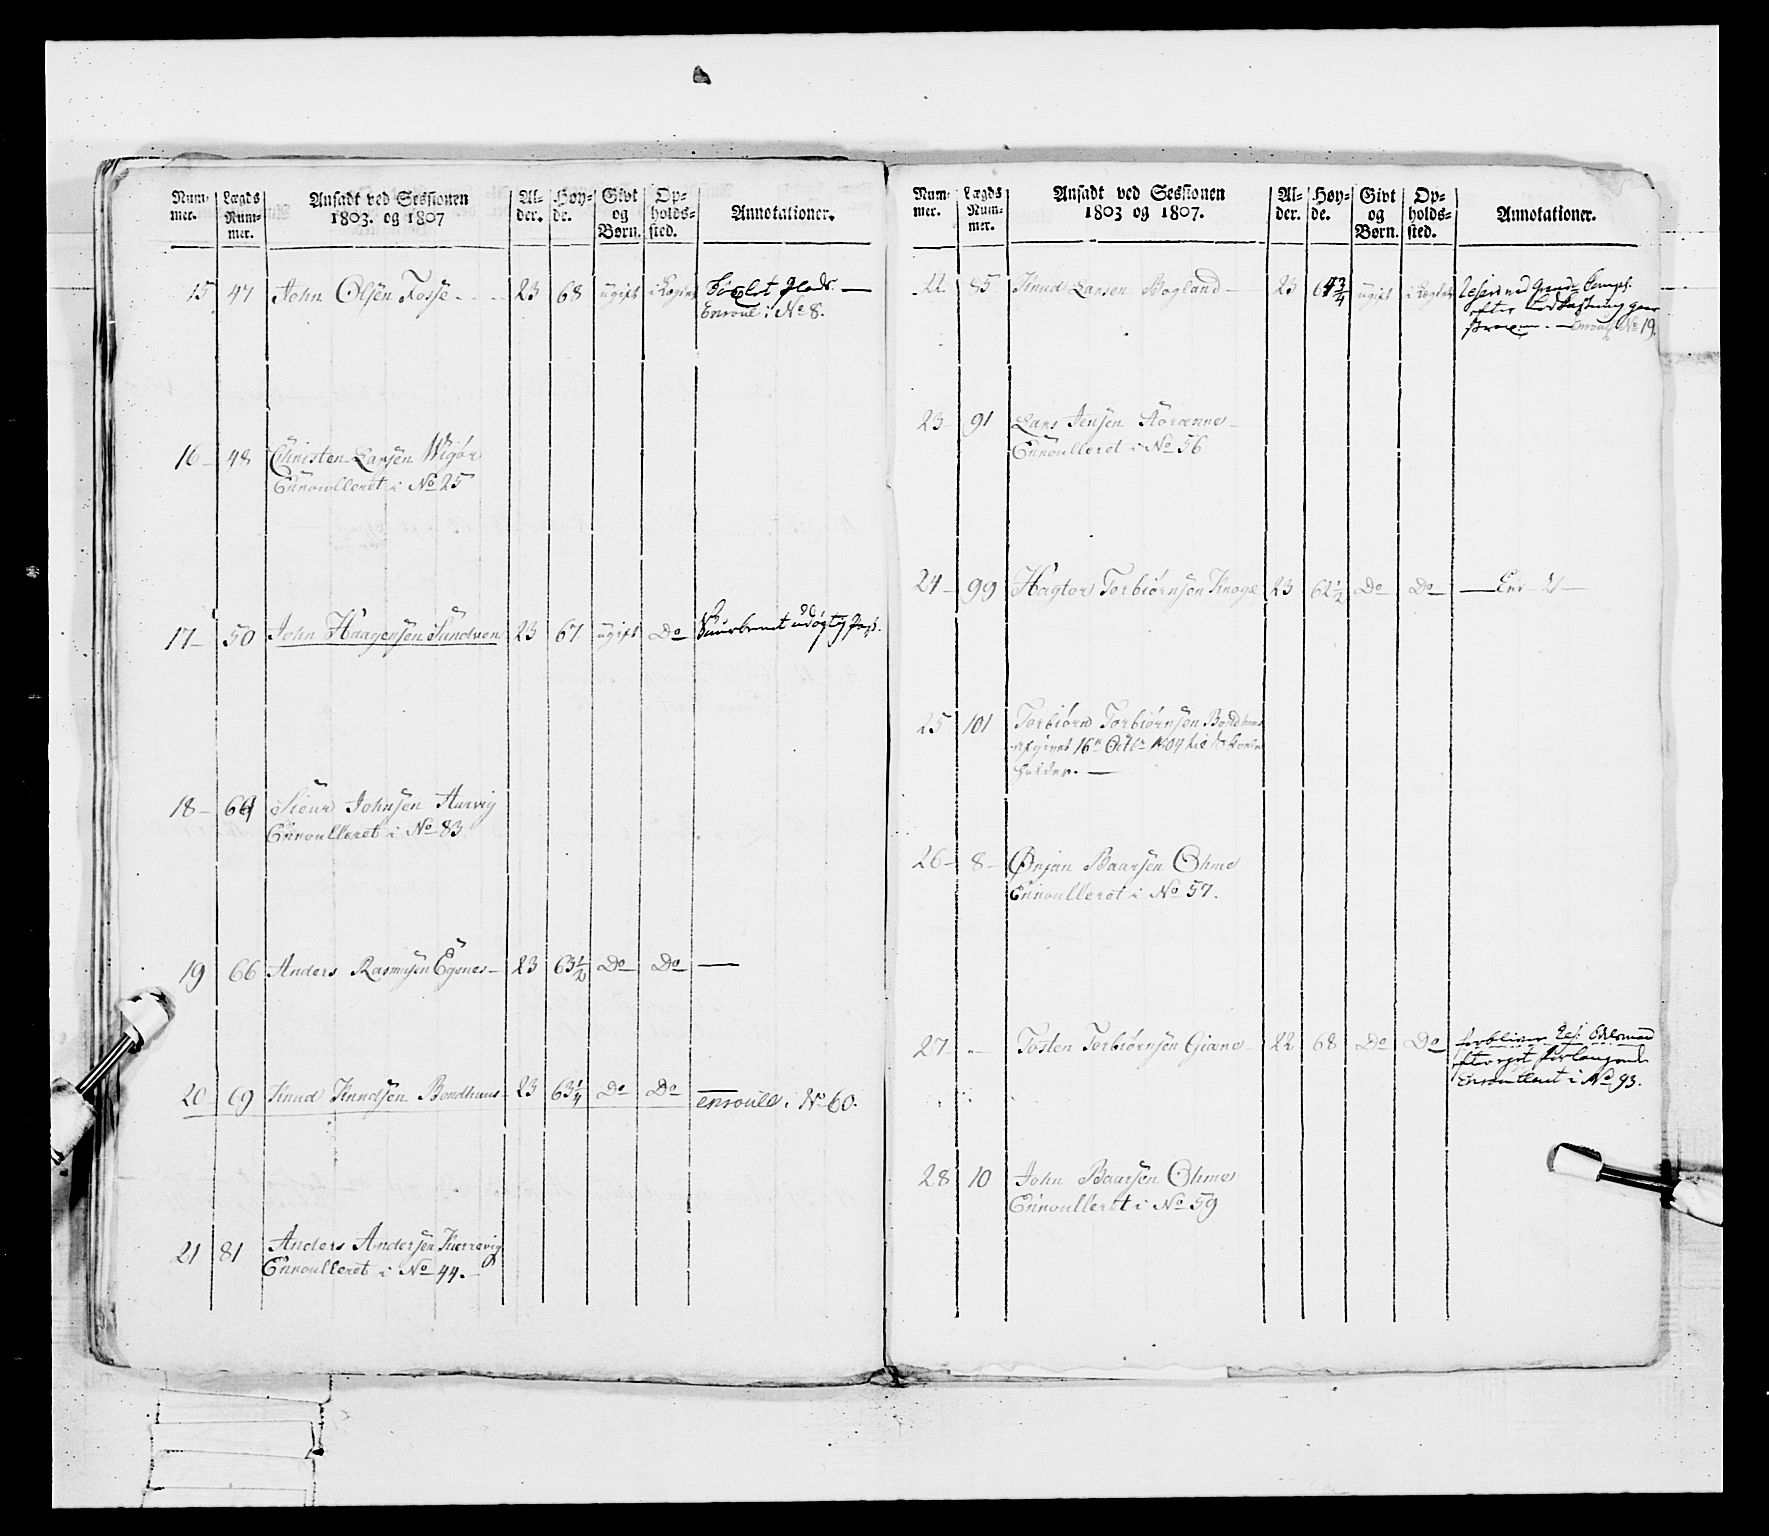 Num-
mer.
Lægds
Num-
mer.
Ansadt ved Sessionen
1803. og 1807
Al-
der.
Høy-
de.
Givt
og
Børn.
Op-
holds-
sted.
Annotationer.
15 47 John Olsen Fosse 23 68 ugift
Enroul i No 8.
16 48 Christen Larsen Wigør
Enroulleret i No 25
17 50 John Haagensen Sundven 23 67 ugift Do
18 64 Siur Johnsen Aarvig
Enroulleret i No 83
19 66 Anders Rasmusen Egenes 23 63 1/2 Do Do —
20 69 Knud Knudsen Bondhuus 23 63 1/4 Do Do enroull i No 60.
21 81 Anders Andersen Kierrevig
Enroulleret i No 44.
Num-
mer.
Lægds
Num-
mer.
Ansadt ved Sessionen
1803 og 1807.
Al-
der.
Høy-
de.
Givt
og
Børn.
Op-
holds-
sted.
Annotationer.
22 85 Knud Larsen Bogland 23 64 3/4 ugift
No 19.
23 91 Lars Jensen
Enroulleret i No 56
24 99 Hagtor Torbiørnsen 23 62 1/2 Do Do
25 101 Torbiørn Torbiørnsen Bondhuus
afgivet 16n Octbr 1804 til
holder.
26 8 Ørjan Baarsen Ohme
Enroulleret i No 57.
27 Tosten Torbiørnsen Giæne 22 68 Do Do forbliver
efter eget forlangende
Enroulleret i No 93.
28 10 John Baarsen Ohme
Enroulleret i No 59